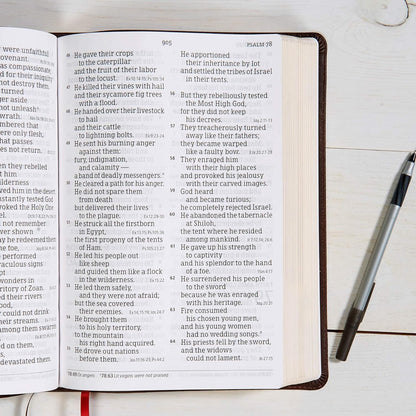 were unfaithful
ovenant.
was compassionate;
d for their iniquity
not destroy them.
turned
ger aside
not unleash
wrath.
mbered that
were only flesh,
that passes
oes not return.
n they rebelled
against him
ilderness
ved him in the desert.
nstantly tested God
voked the Holy One
l.
not remember
wer shown
he redeemed them
he foe,
performed
raculous signs
pt
wonders in
territory of Zoan.
ed their rivers
lood,
could not drink
eir streams.
among them swarms
devastated them.
905
46 He gave their crops
to the caterpillar
and the fruit of their labor
to the locust.
47 He killed their vines with hail
and their sycamore fig trees
with a flood.
48 He handed over their livestock
to hail
and their cattle
to lightning bolts.
49 He sent his burning anger
against them:
fury, indignation,
and calamity —
a band of deadly messengers.
50 He cleared a path for his anger.
He did not spare them
from death
but delivered their lives
to the plague.
51 He struck all the firstborn
in Egypt,
the first progeny of the tents
of Ham.
52 He led his people out
like sheep
and guided them like a flock
in the wilderness.
53 He led them safely,
and they were not afraid;
but the sea covered
their enemies.
54 He brought them
to his holy territory,
to the mountain
his right hand acquired.
55 He drove out nations
before them.
PSALM 78
He apportioned
their inheritance by lot
and settled the tribes of Israel
in their tents.
56 But they rebelliously tested
the Most High God,
for they did not keep
his decrees.
57 They treacherously turned
away like their fathers;
they became warped
like a faulty bow.
58 They enraged him
with their high places
and provoked his jealousy
with their carved images.
59 God heard
and became furious;
he completely rejected Israel.
60 He abandoned the tabernacle
at Shiloh,
the tent where he resided
among mankind.
61 He gave up his strength
to captivity
and his splendor to the hand
of a foe.
62 He surrendered his people
to the sword
because he was enraged
with his heritage.
63 Fire consumed
his chosen young men,
and his young women
had no wedding songs.
64 His priests fell by the sword,
and the widows
could not lament.
78:49 Or angels 78:63 Lit virgins were not praised